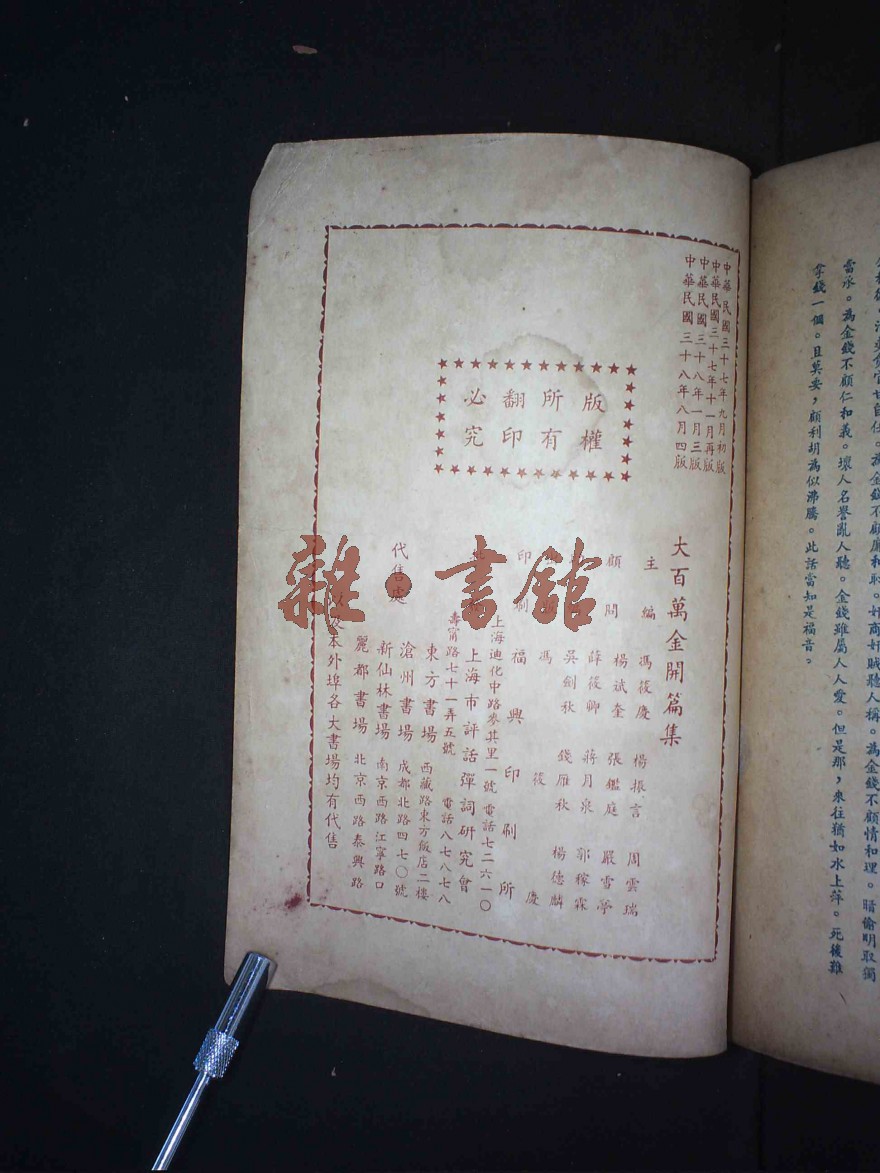 中華民國三十七年九月初版
中華民國三十七年十一月再版
中華民國三十八年一月三版
中華民國三十八年八月四版
版權
所有
翻印
必究
大百萬金開篇集
主編 馮筱慶 楊振言 周雲瑞
顧問 楊斌奎 張鑑庭 嚴雪亭
薛筱卿 蔣月泉 郭稼霖
吳劍秋 錢雁秋 楊德麟
馮筱慶
印刷 福興印刷所
上海迪化中路麥其里一號 電話七二六一〇
上海市評話彈詞研究會
壽甯路七十一弄五號 電話八七八七八
代售處 東方書場 西藏路東方飯店二樓
滄州書場 成都北路四七〇號
新仙林書場 南京西路江寧路口
麗都書場 北京西路泰興路
本外埠各大書場均有代售
雜·書館
為金錢不顧廉和恥。奸商奸賊聽人稱。為金錢不顧情和理。暗偷明取獨
當承。為金錢不顧仁和義。壞人名譽亂人聽。金錢雖屬人人愛。但是那，來往猶如水上萍。死後難
拿錢一個。且莫妄，顧利胡為似沸騰。此話當知是福音。